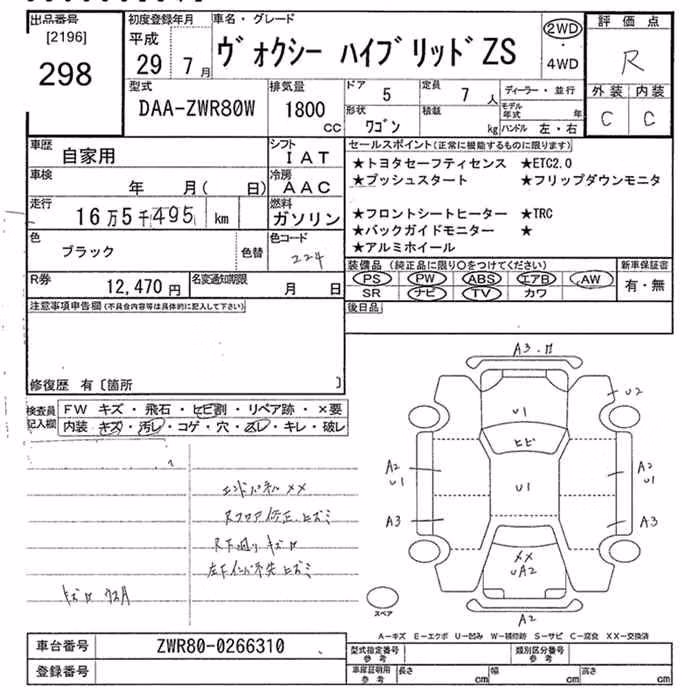 出品番号
[2196]
298
初度登録年月
平成
29年 7月
車名・グレード
ヴォクシー ハイブリッドZS
2WD
・
4WD
評価点
R
外装 内装
C C
型式
DAA-ZWR80W
排気量
1800
CC
ドア
5
定員
7 人
形状
ワゴン
積載
kg
ディーラー・並行
モデル年式 年
ハンドル 左・右
車歴
自家用
シフト
IAT
車検
年 月( 日)
冷房
AAC
走行
16万5千495 km
燃料
ガソリン
色
ブラック
色替
色コード
224
R券
12,470 円
名変通知期限
月 日
セールスポイント(正常に機能するものに限ります)
★トヨタセーフティセンス ★ETC2.0
★プッシュスタート ★フリップダウンモニタ
★フロントシートヒーター ★TRC
★バックガイドモニター ★
★アルミホイール
装備品(純正品に限り○をつけてください)
PS PW ABS エアB AW
SR ナビ TV カワ
新車保証書
有・無
後日品
注意事項申告欄(不具合内容等は具体的に記入して下さい)
修復歴 有〔箇所 〕
検査員記入欄
FW キズ・飛石・ヒビ割・リペア跡・×要
内装 キズ・汚レ・コゲ・穴・スレ・キレ・破レ
エンドパネルXX
Rフロア修正、ヒズミ
R下廻りキズ
ヒズミ
A3
U2
U1
ヒビ
A2
U1
U1
A2
U1
A3
A3
XX
UA2
A2
スペア
A-キズ E-エクボ U-凹み W-補修跡 S-サビ C-腐食 XX-交換済
車台番号
ZWR80-0266310
登録番号
型式指定番号
参考
類別区分番号
参考
車庫証明用
参考
長さ cm 幅 cm 高さ cm